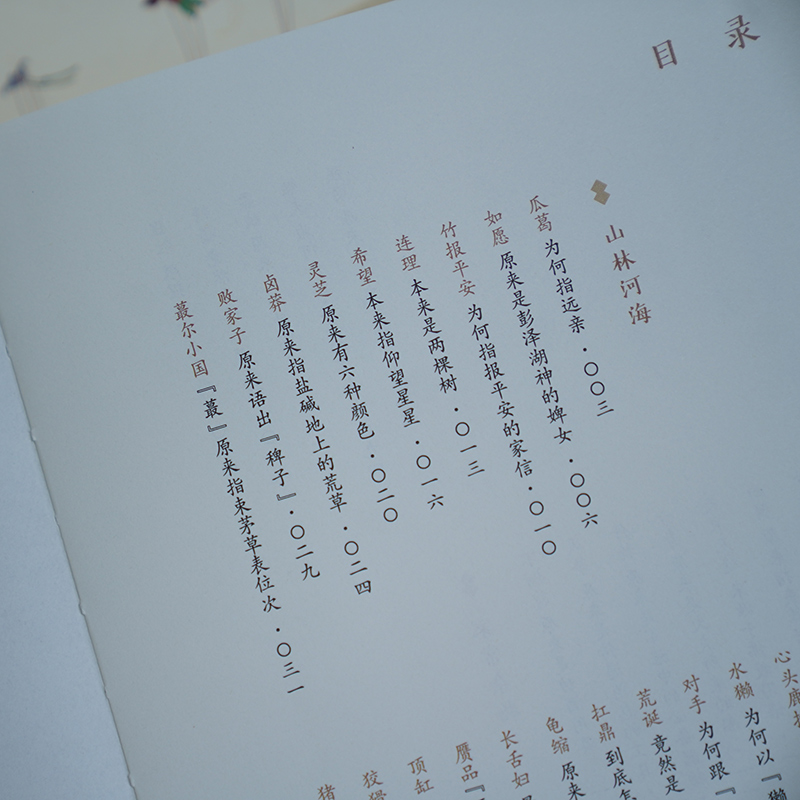 目录
山林河海
瓜葛 为何指远亲·〇〇三
如愿 原来是彭泽湖神的婢女·〇〇六
竹报平安 为何指报平安的家信·〇一〇
连理 本来是两棵树·〇一三
希望 本来指仰望星星·〇一六
灵芝 原来有六种颜色·〇二〇
卤莽 原来指盐碱地上的荒草·〇二四
败家子 原来语出『稗子』·〇二九
蕞尔小国 『蕞』原来指束茅草表位次·〇三一
心头鹿撞
水獭 为何以『獭
对手 为何跟『
荒诞 竟然是
扛鼎 到底怎
龟缩 原来
长舌妇
赝品『
顶缸
狡猾
猪